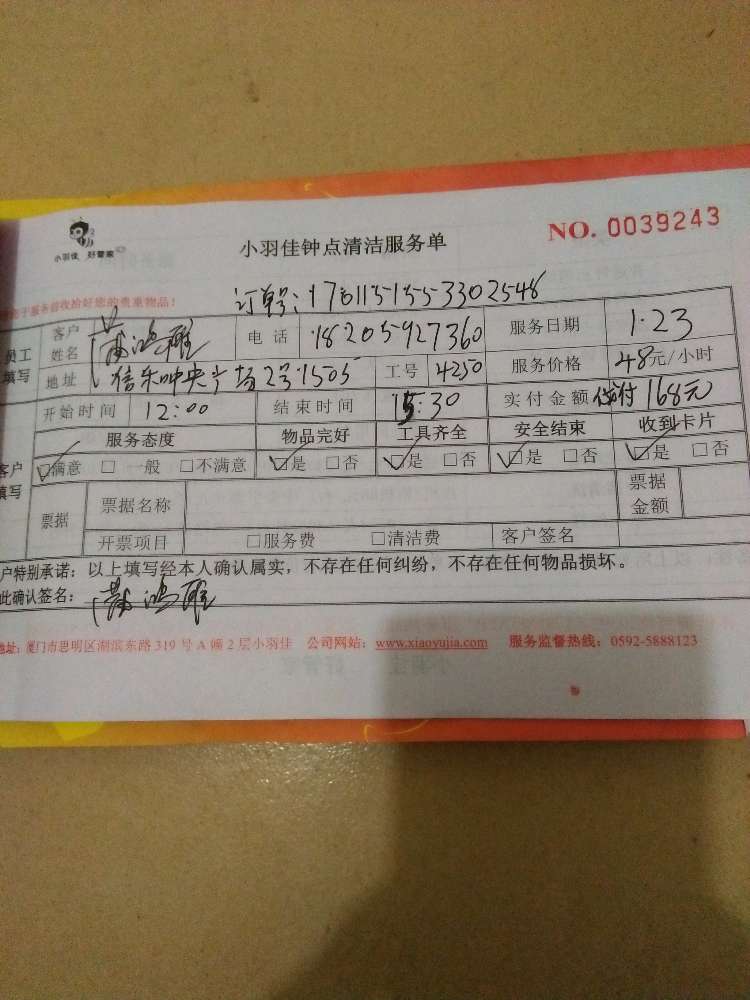 小羽佳 好管家
小羽佳钟点清洁服务单
NO. 0039243
订单号:1701151553302548
员工填写
客户姓名
电话 18205927360
服务日期 1.23
地址 央广场2号1505
工号 4250
服务价格 48元/小时
开始时间 12:00
结束时间 15:30
实付金额 168元
客户填写
服务态度 物品完好 工具齐全 安全结束 收到卡片
☑满意 □一般 □不满意 ☑是 □否 ☑是 □否 ☑是 □否 ☑是 □否
票据 票据名称 票据金额
开票项目 □服务费 □清洁费 客户签名
户特别承诺:以上填写经本人确认属实,不存在任何纠纷,不存在任何物品损坏。
此确认签名:
地址:厦门市思明区湖滨东路 319 号 A 幢 2 层小羽佳 公司网站:www.xiaoyujia.com 服务监督热线:0592-5888123